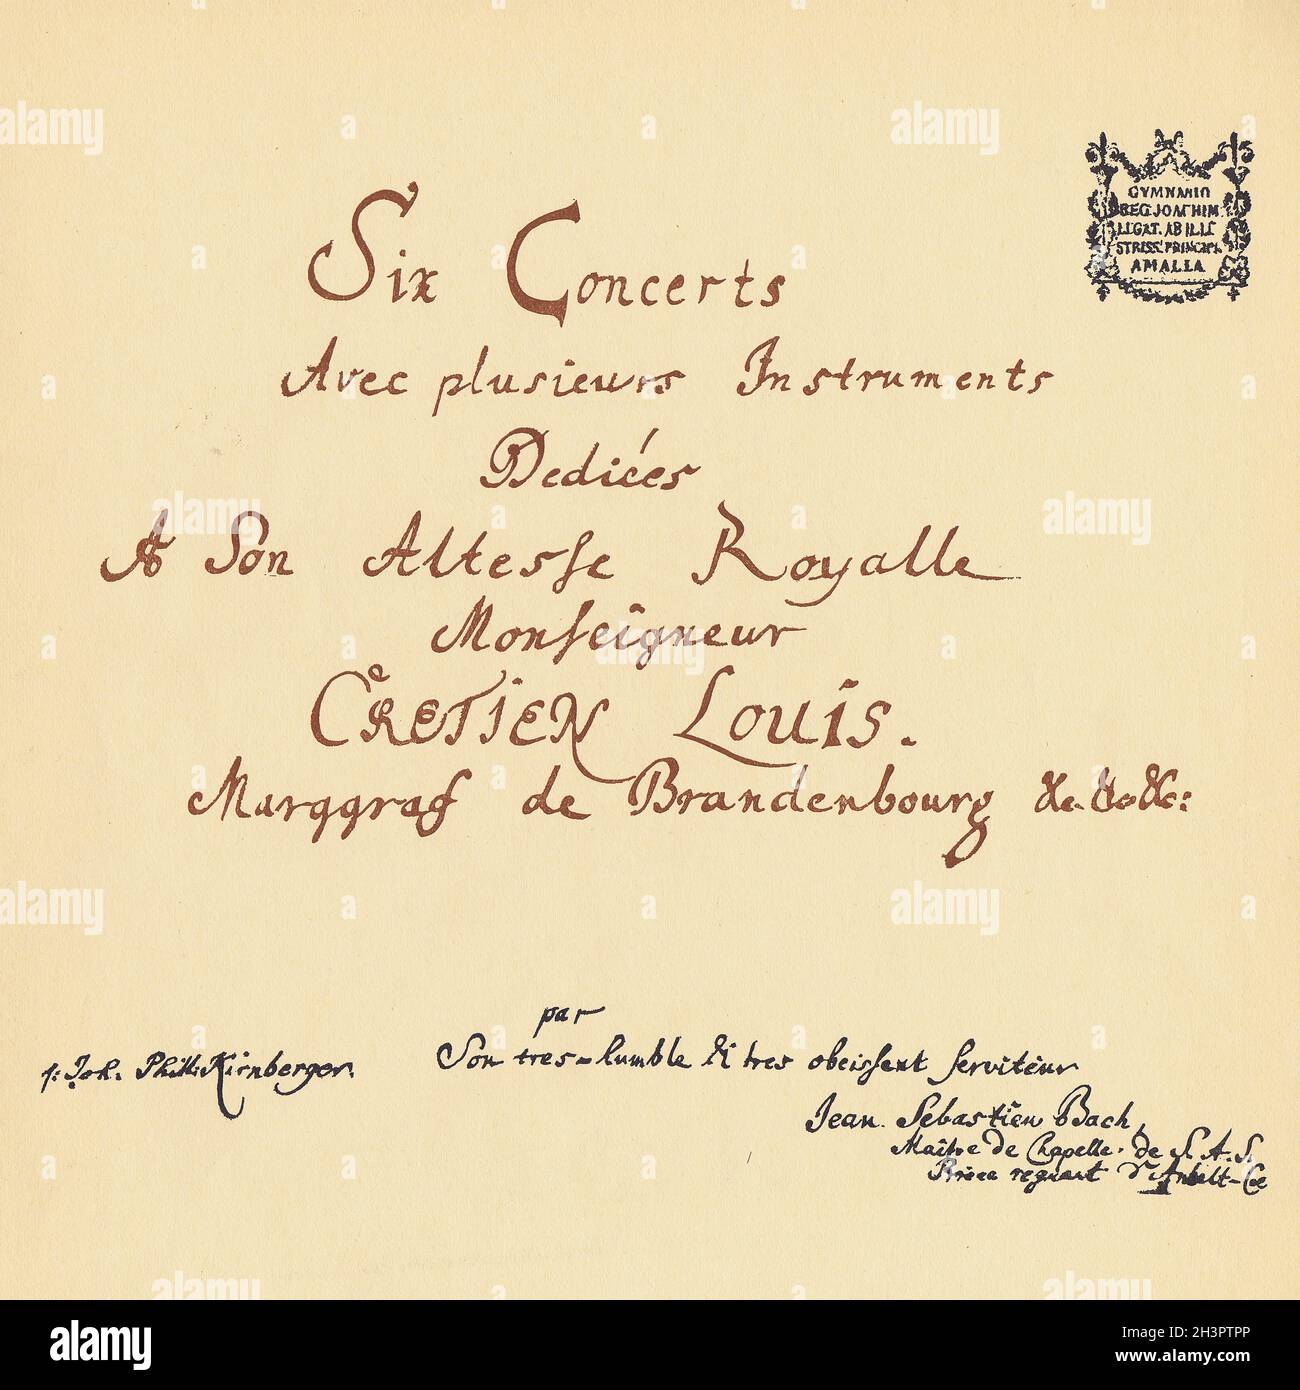 GYMNASIO
REG. JOACHIM.
LEGAT. AB ILLU
STRISS. PRINCIPE
AMALIA
Six Concerts
Avec plusieurs Instruments
Dediées
A Son Altesse Royalle
Monseigneur
CRETIEN LOUIS.
Marggraf de Brandenbourg &c. &c. &c:
par
Son tres-humble & tres obeissent serviteur
J: Joh. Phill: Kirnberger.
Jean Sebastien Bach,
Maître de Chapelle de S. A. S.
Prince regnant d'Anhalt-Coe
alamy
Image ID: 2H3PTPP
www.alamy.com